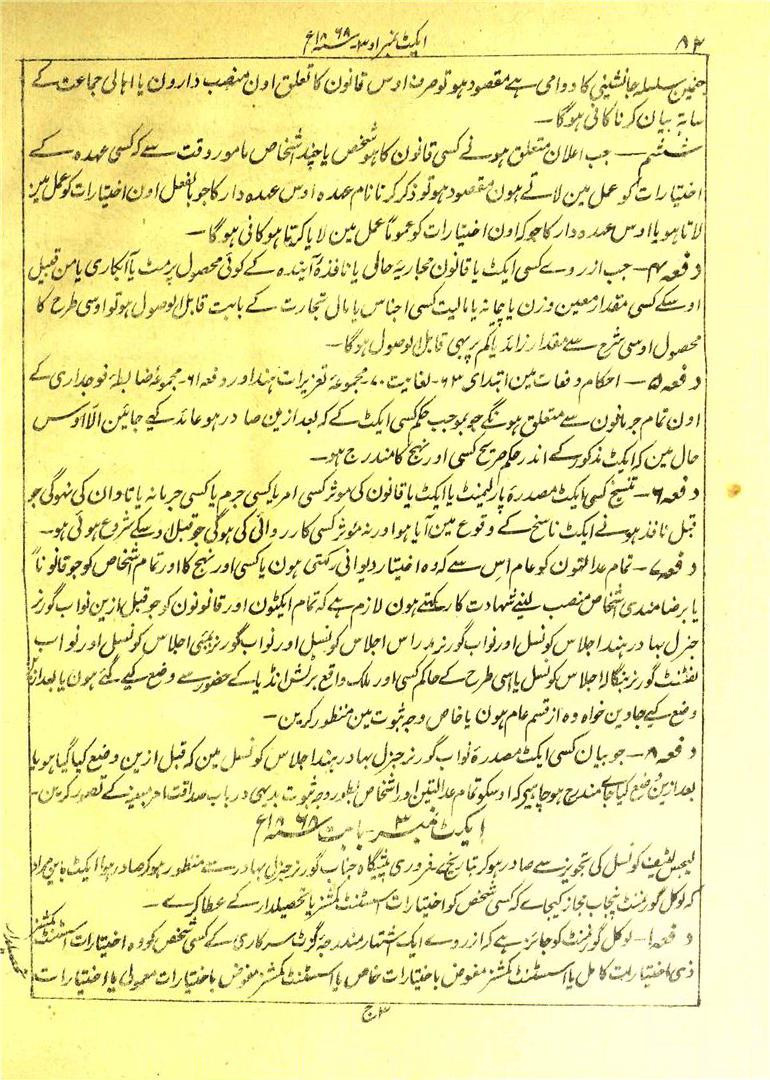 ۸۲
ایکٹ نمبر اوّ۳۔ سنہ ۱۸۶۸ع
جنمین سلسلہ جانشینی کا دوامی ہے مقصود ہو تو صرف اوس قانون کا تعلق اون منصب دارون یا اہالی جماعت کے
ساتھ بیان کرنا کافی ہوگا۔
ششم۔ جب اعلان متعلق ہونے کسی قانون کا ہو شخص یا چند اشخاص مامور وقت سے کہ کسی عہدہ کے
اختیارات کو عمل مین لاتے ہون مقصود ہو تو ذکر کرنا نام عہدہ اوس عہدہ دار کا جو بالفعل اون اختیارات کو عمل مین
لاتا ہو یا اوس عہدہ دار کا جو کہ اون اختیارات کو عموماً عمل مین لایا کرتا ہو کافی ہوگا۔
دفعہ ۴۔ جب از روے کسی ایکٹ یا قانون مجاریۂ حالی یا نافذۂ آیندہ کے کوئی محصول پرمٹ یا آبکاری یا من قبیل
اوسکے کسی مقدار معین وزن یا پیمانہ یا مالیت کسی اجناس یا مال تجارت کے بابت قابل الوصول ہو تو اوسی طرح کا
محصول اوسی شرح سے مقدار زائد یا کم پر بھی قابل الوصول ہوگا۔
دفعہ ۵۔ احکام دفعات مین ابتداے ۶۳۔ لغایت ۷۰۔ مجموعۂ تعزیرات ہند اور دفعہ ۶۱۔ مجموعۂ ضابطۂ فوجداری کے
اون تمام جرمانون سے متعلق ہونگے جو بموجب حکم کسی ایکٹ کے کہ بعد ازین صادر ہو عائد کیے جائین الا اوس
حال مین کہ ایکٹ مذکور کے اندر حکم صریح کسی اور نہج کا مندرج ہو۔
دفعہ ۶۔ تنسیخ کسی ایکٹ مصدرۂ پارلیمنٹ یا ایکٹ یا قانون کی موثر کسی امر یا کسی جرم یا کسی جرمانہ یا تاوان کی نہوگی جو
قبل نافذ ہونے ایکٹ ناسخ کے وقوع مین آیا ہو اور نہ موثر کسی کارروائی کی ہوگی جو قبل اوسکے شروع ہوئی ہو۔
دفعہ ۷۔ تمام عدالتون کو عام اس سے کہ وہ اختیار دیوانی رکھتی ہون یا کسی اور نہج کا اور تمام اشخاص کو جو قانوناً
یا برضامندی اشخاص منصب لینے شہادت کا رکھتے ہون لازم ہے کہ تمام ایکٹون اور قانونون کو جو قبل ازین نواب گورنر
جنرل بہادر ہند اجلاس کونسل اور نواب گورنر مدراس اجلاس کونسل اور نواب گورنر بمبئی اجلاس کونسل اور نواب
لفٹنٹ گورنر بنگالہ اجلاس کونسل یا اسی طرح کے حاکم کسی اور ملک واقع برٹش انڈیا کے حضور سے وضع کیے گئے ہون یا بعد ازین
وضع کیے جاوین خواہ وہ از قسم عام ہون یا خاص وجہ ثبوت مین منظور کرین۔
دفعہ ۸۔ جو بیان کسی ایکٹ مصدرۂ نواب گورنر جنرل بہادر ہند اجلاس کونسل مین کہ قبل ازین وضع کیا گیا ہو یا
بعد ازین وضع کیا جاے مندرج ہو چاہیے کہ اوسکو تمام عدالتین اور اشخاص بطور وجہ ثبوت بدیہی در باب صداقت امر مبینہ کے تصور کرین۔
ایکٹ نمبر ۳۔ بابت سنہ ۱۸۶۸ع
لیجس لیٹیف کونسل کی تجویز سے صادر ہوکر بتاریخ فروری پیشگاہ جناب گورنر جنرل بہادر سے منظور ہوکر صادر ہوا ایکٹ باین مراد
کہ لوکل گورنمنٹ پنجاب مجاز کیجاے کہ کسی شخص کو اختیارات اسسٹنٹ کمشنر یا تحصیلدار کے عطا کرے۔
دفعہ ۱۔ لوکل گورنمنٹ کو جائز ہے کہ از روے ایک اشتہار مندرجۂ گزٹ سرکاری کے کسی شخص کو وہ اختیارات اسسٹنٹ کمشنر
ذی اختیارات کامل یا اسسٹنٹ کمشنر مفوض باختیارات خاص یا اسسٹنٹ کمشنر مفوض باختیارات معمولی یا اختیارات
تحصیلدار
۳ج